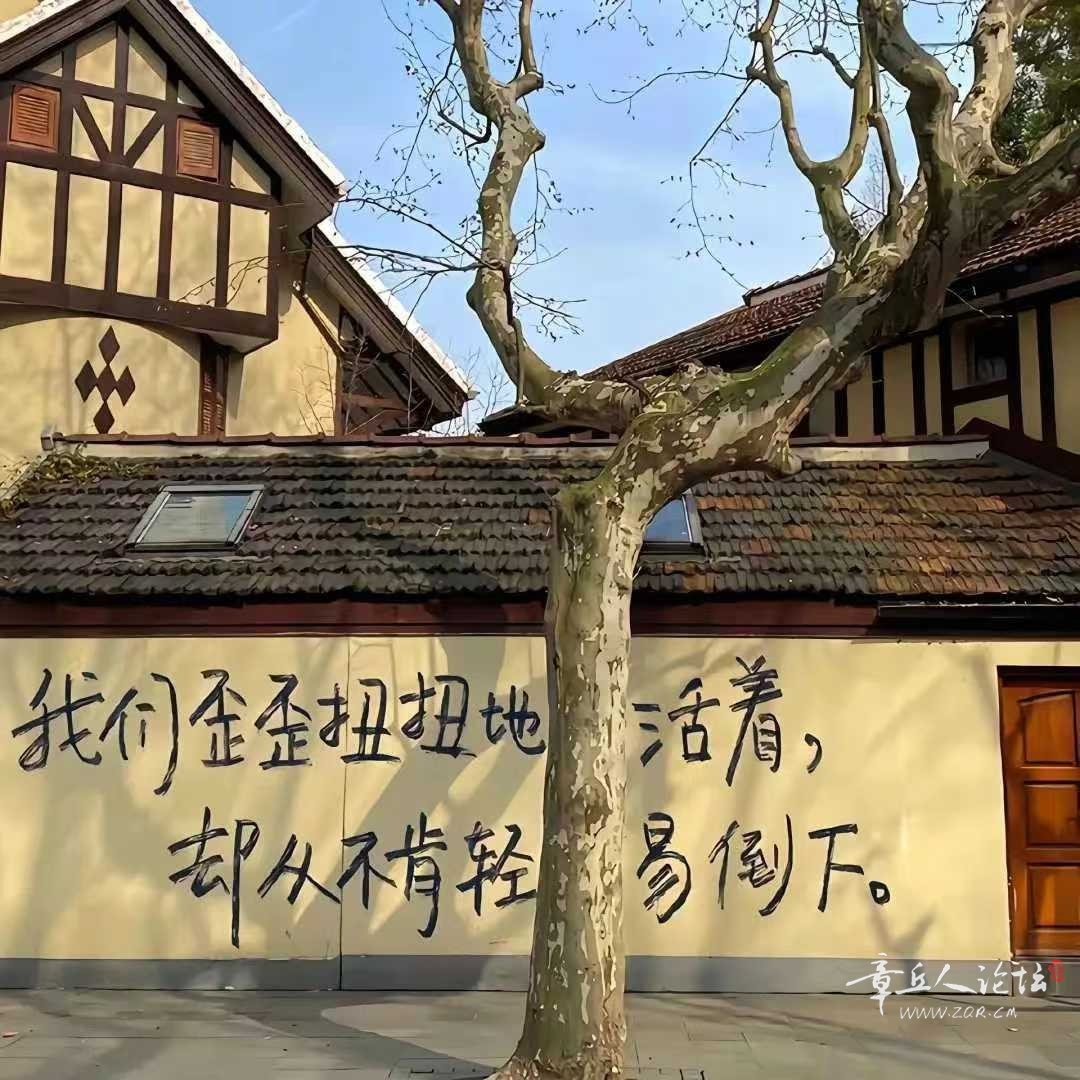 我们歪歪扭扭地活着，
却从不肯轻易倒下。
章丘人论坛
WWW.ZQR.CM